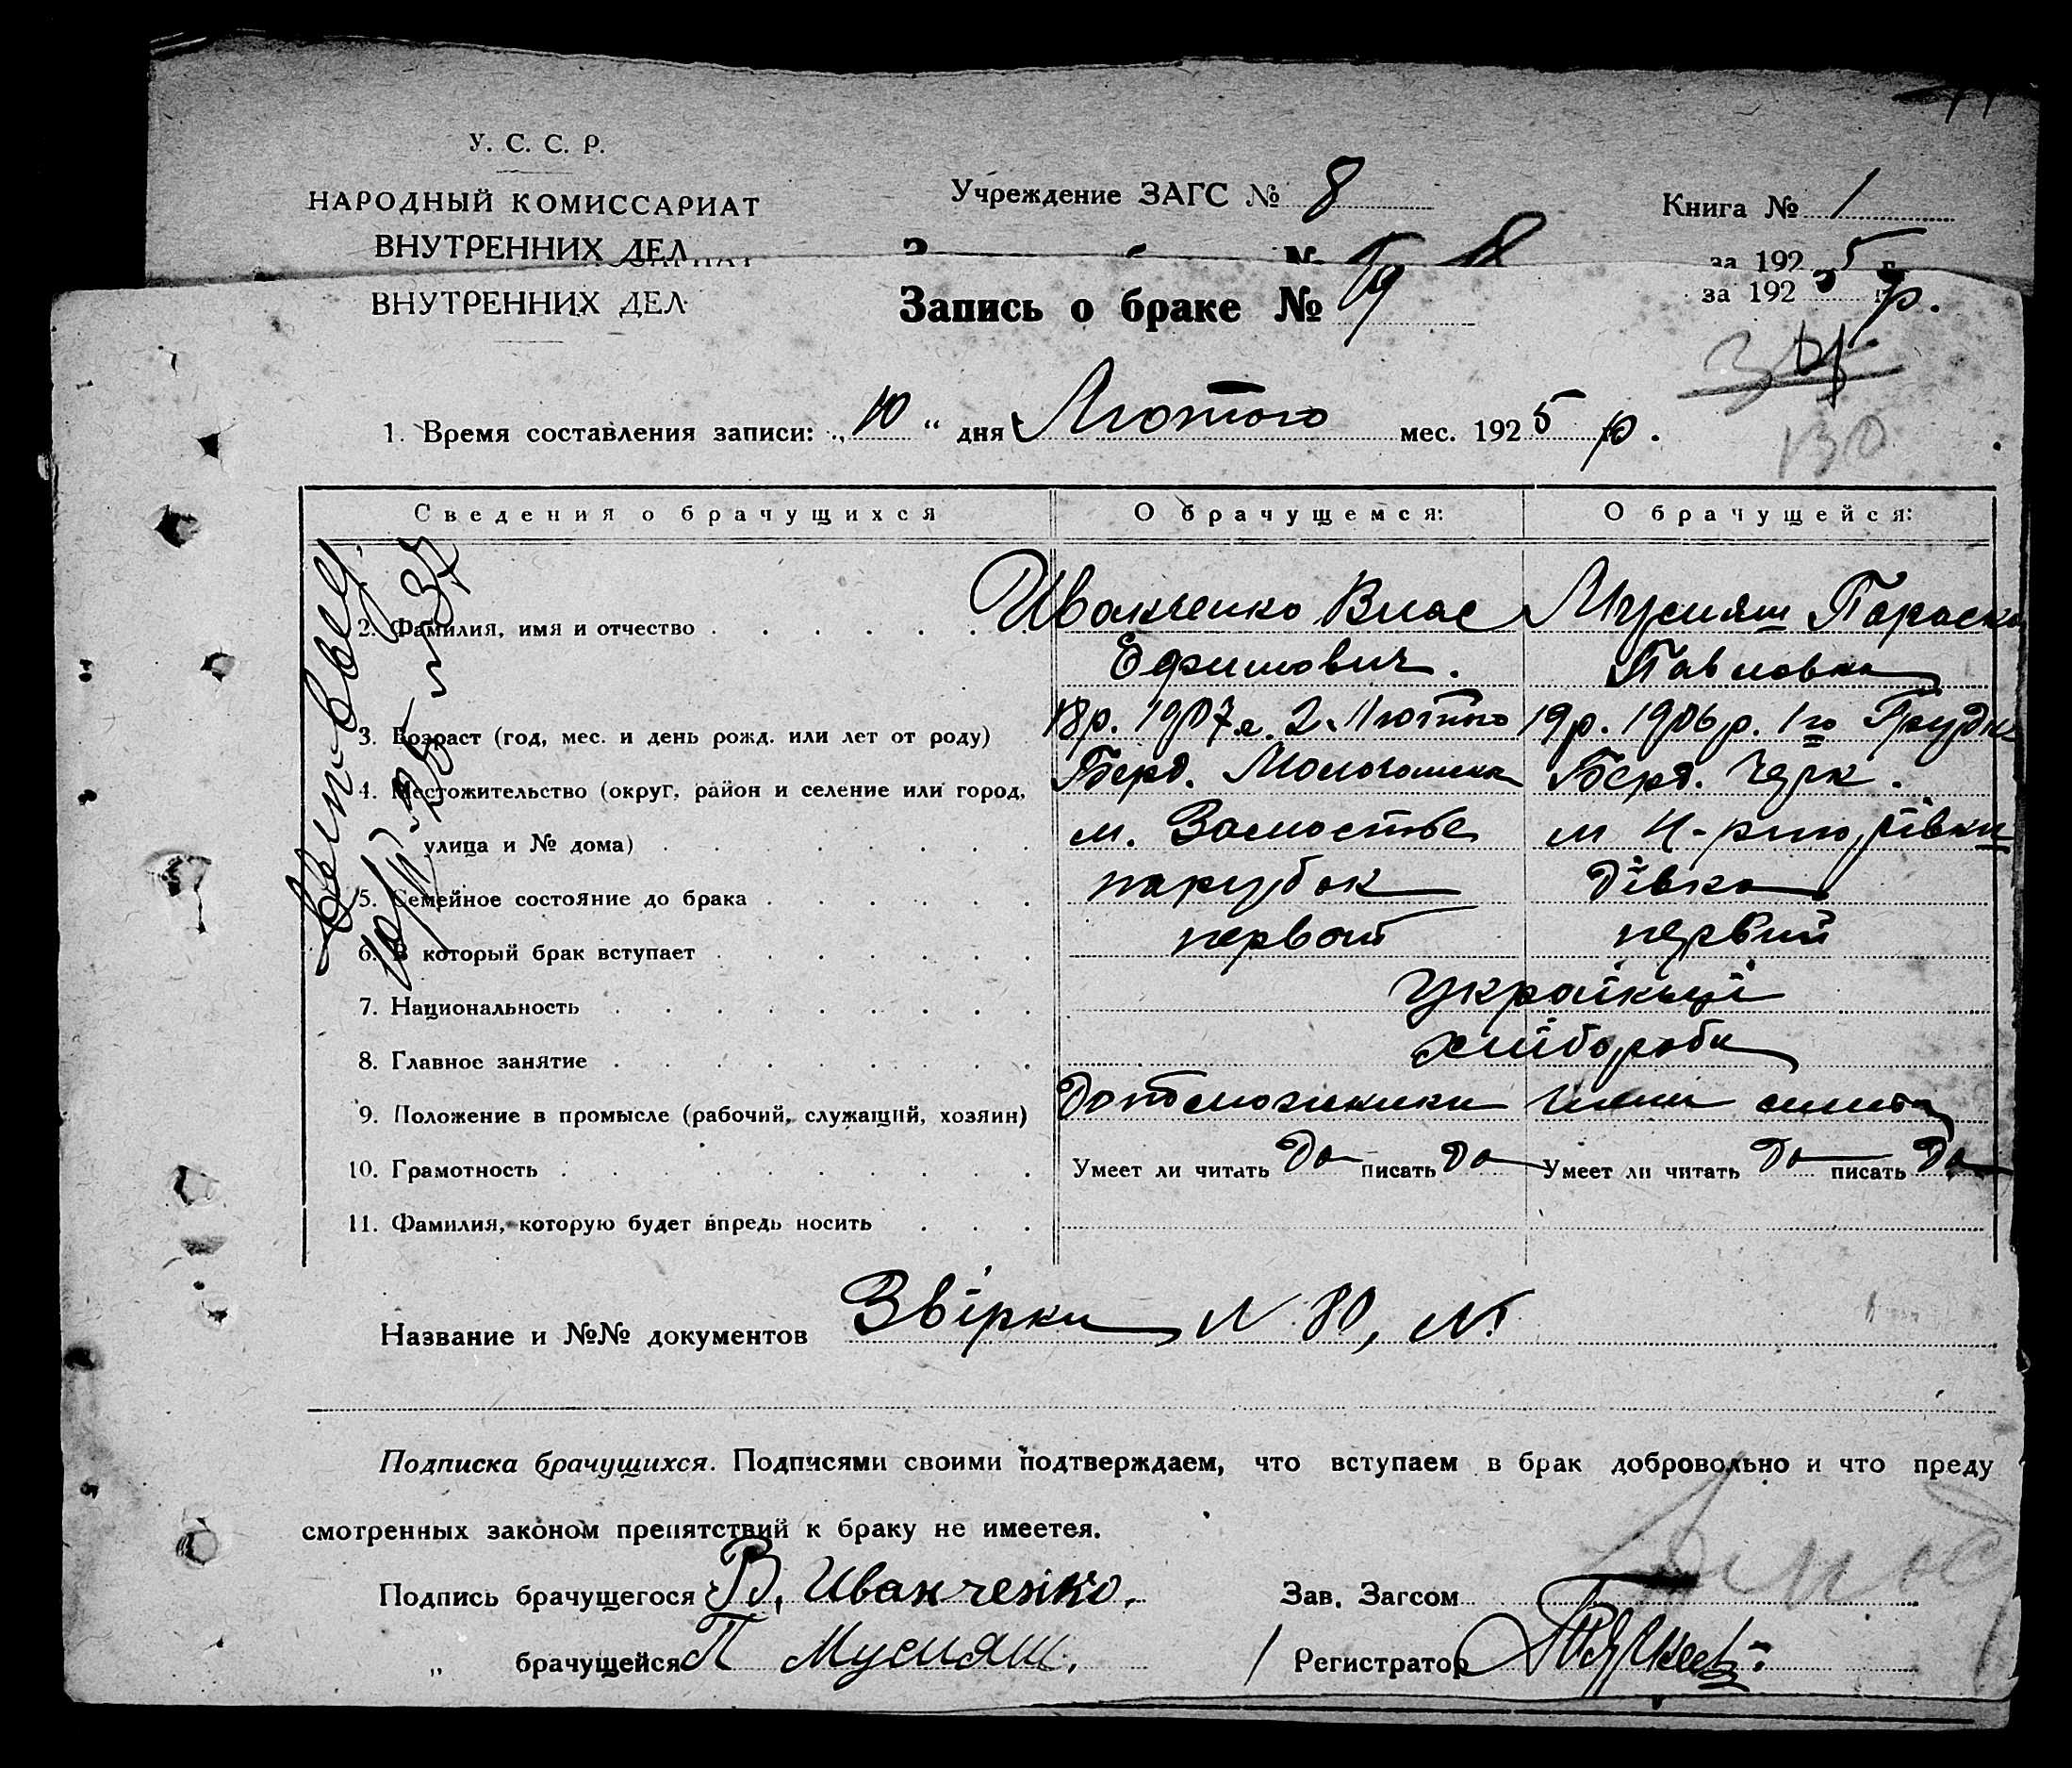 У. С. С. Р.
НАРОДНЫЙ КОМИССАРИАТ
ВНУТРЕННИХ ДЕЛ
Учреждение ЗАГС № 8
Книга № 1
за 1925 г.
ВНУТРЕННИХ ДЕЛ
Запись о браке № 9
за 1925 р.
130
1. Время составления записи: „10" дня Лютого мес. 1925 р.
Сведения о брачущихся
О брачущемся:
О брачущейся:
2. Фамилия, имя и отчество
Иванченко Влас
Ефимович.
Мусияш Параска
Павловна
3. Возраст (год, мес. и день рожд. или лет от роду)
18р. 1907р. 2 Лютого
19р. 1906р. 1го Грудня
4. Местожительство (округ, район и селение или город,
Берд.
Берд. Черк.
улица и № дома)
м. Замостье
м
5. Семейное состояние до брака
парубок
дівка
6. В который брак вступает
первой
первий
7. Национальность
Українці
8. Главное занятие
хлібороби
9. Положение в промысле (рабочий, служащий, хозяин)
Допоможники
10. Грамотность
Умеет ли читать Да писать Да
Умеет ли читать Да писать Да
11. Фамилия, которую будет впредь носить
Название и №№ документов Звірки N 80, N
Подписка брачущихся. Подписями своими подтверждаем, что вступаем в брак добровольно и что преду
смотренных законом препятствий к браку не имеется.
Подпись брачущегося В. Иванченко.
Зав. Загсом
„ брачущейся П Мусияш.
Регистратор